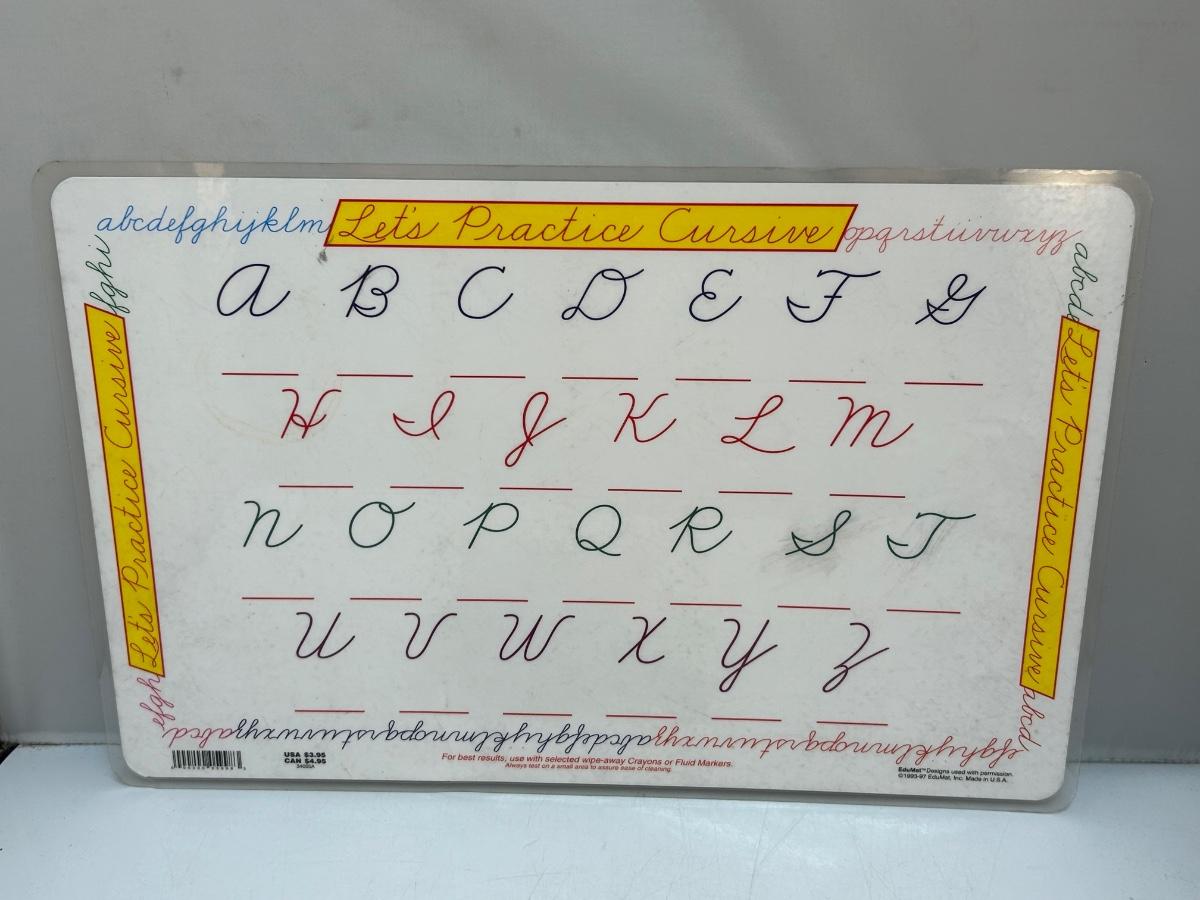 abcdefghijklm Let's Practice Cursive opqrstuvwxyz
fghi
abcde
A B C D E F G
Let's Practice Cursive
Let's Practice Cursive
H I J K L M
N O P Q R S T
U V W X Y Z
efgh
abcd
abcdefghijklmnopqrstuvwxyzabcdefghijklmnopqrstuvwxyzabcd
efghijklmnopqrstuvwxyz
USA $3.95
CAN $4.95
34093A
For best results, use with selected wipe-away Crayons or Fluid Markers.
Always test on a small area to assure ease of cleaning.
EduMat™ Designs used with permission.
©1993-97 EduMat, Inc. Made in U.S.A.